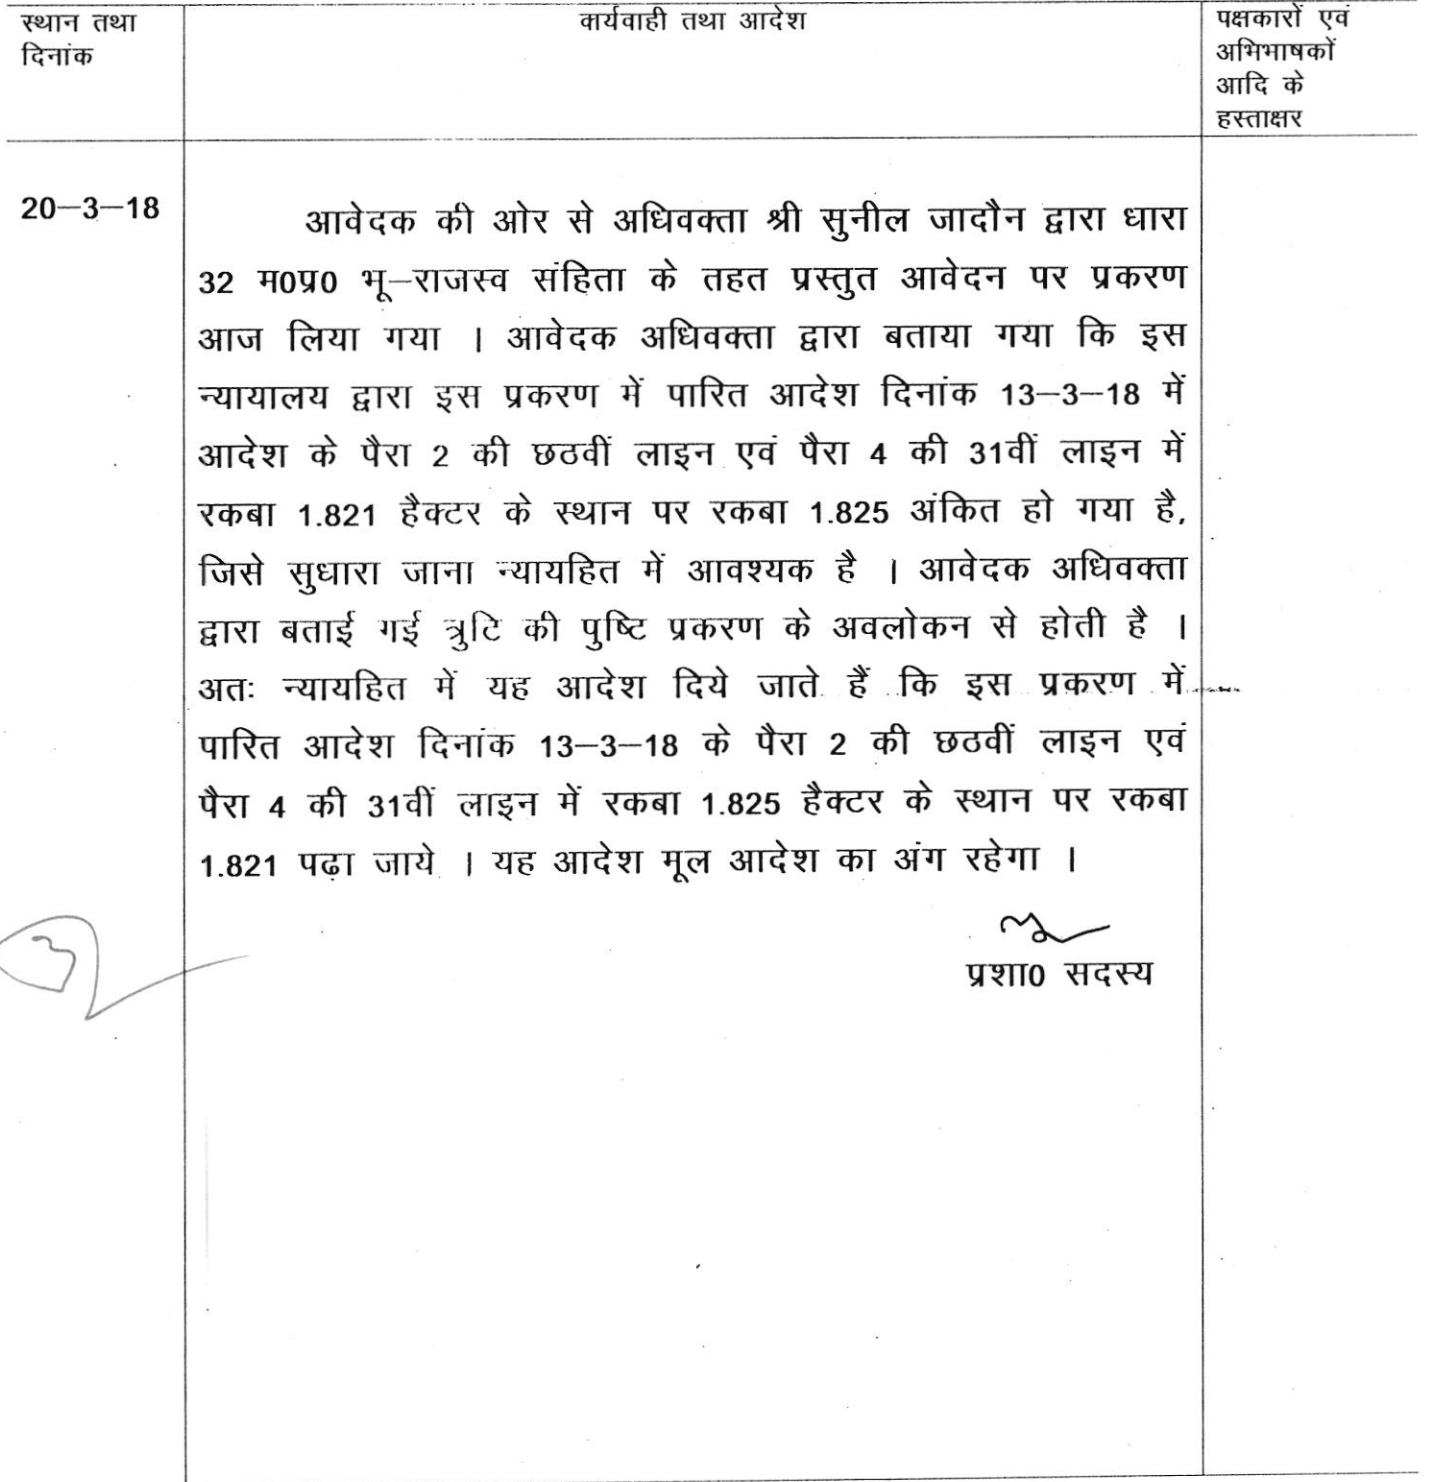 स्थान तथा
दिनांक
कार्यवाही तथा आदेश
पक्षकारों एवं
अभिभाषकों
आदि के
हस्ताक्षर
20—3—18
आवेदक की ओर से अधिवक्ता श्री सुनील जादौन द्वारा धारा
32 म0प्र0 भू—राजस्व संहिता के तहत प्रस्तुत आवेदन पर प्रकरण
आज लिया गया । आवेदक अधिवक्ता द्वारा बताया गया कि इस
न्यायालय द्वारा इस प्रकरण में पारित आदेश दिनांक 13—3—18 में
आदेश के पैरा 2 की छठवीं लाइन एवं पैरा 4 की 31वीं लाइन में
रकबा 1.821 हैक्टर के स्थान पर रकबा 1.825 अंकित हो गया है,
जिसे सुधारा जाना न्यायहित में आवश्यक है । आवेदक अधिवक्ता
द्वारा बताई गई त्रुटि की पुष्टि प्रकरण के अवलोकन से होती है ।
अतः न्यायहित में यह आदेश दिये जाते हैं कि इस प्रकरण में
पारित आदेश दिनांक 13—3—18 के पैरा 2 की छठवीं लाइन एवं
पैरा 4 की 31वीं लाइन में रकबा 1.825 हैक्टर के स्थान पर रकबा
1.821 पढ़ा जाये । यह आदेश मूल आदेश का अंग रहेगा ।
प्रशा0 सदस्य